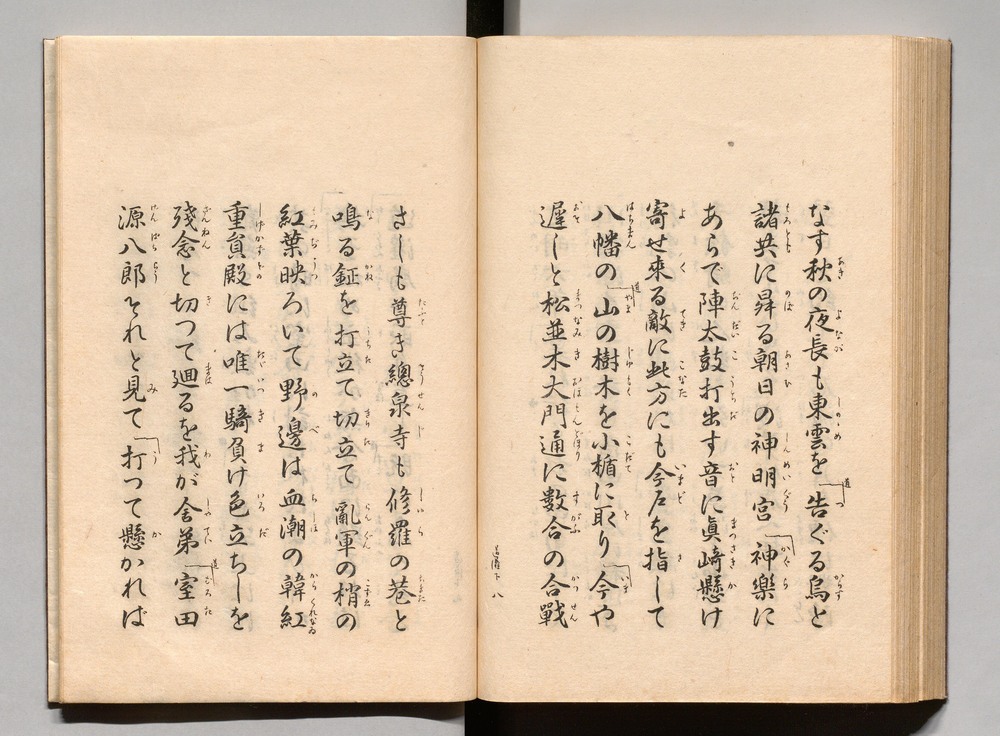 なす秋の夜長も東雲を告ぐる烏と
諸共に昇る朝日の神明宮神樂に
あらで陣太鼓打出す音に眞﨑懸け
寄せ來る敵に此方にも今戸を指して
八幡の山の樹木を小楯に取り今や
遲しと松並木大門通に數合の合戰
さしも尊き總泉寺も修羅の巷と
鳴る鉦を打立て切立て亂軍の梢の
紅葉映ろいて野邊は血潮の韓紅
重員殿には唯一騎負け色立ちしを
殘念と切つて廻るを我が舍弟室田
源八郎それと見て打つて懸かれば